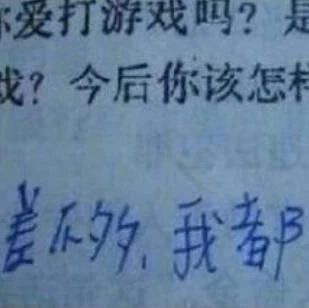 你爱打游戏吗？是
戏？今后你该怎样
差不多，我都